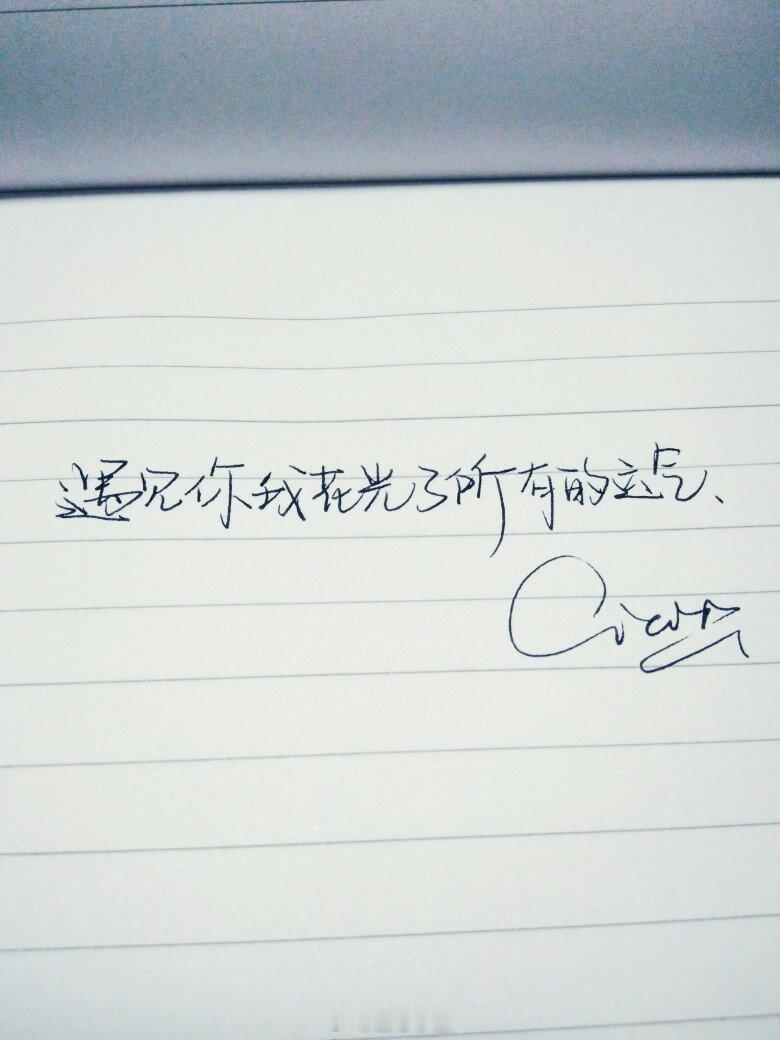 遇见你我花光了所有的运气、